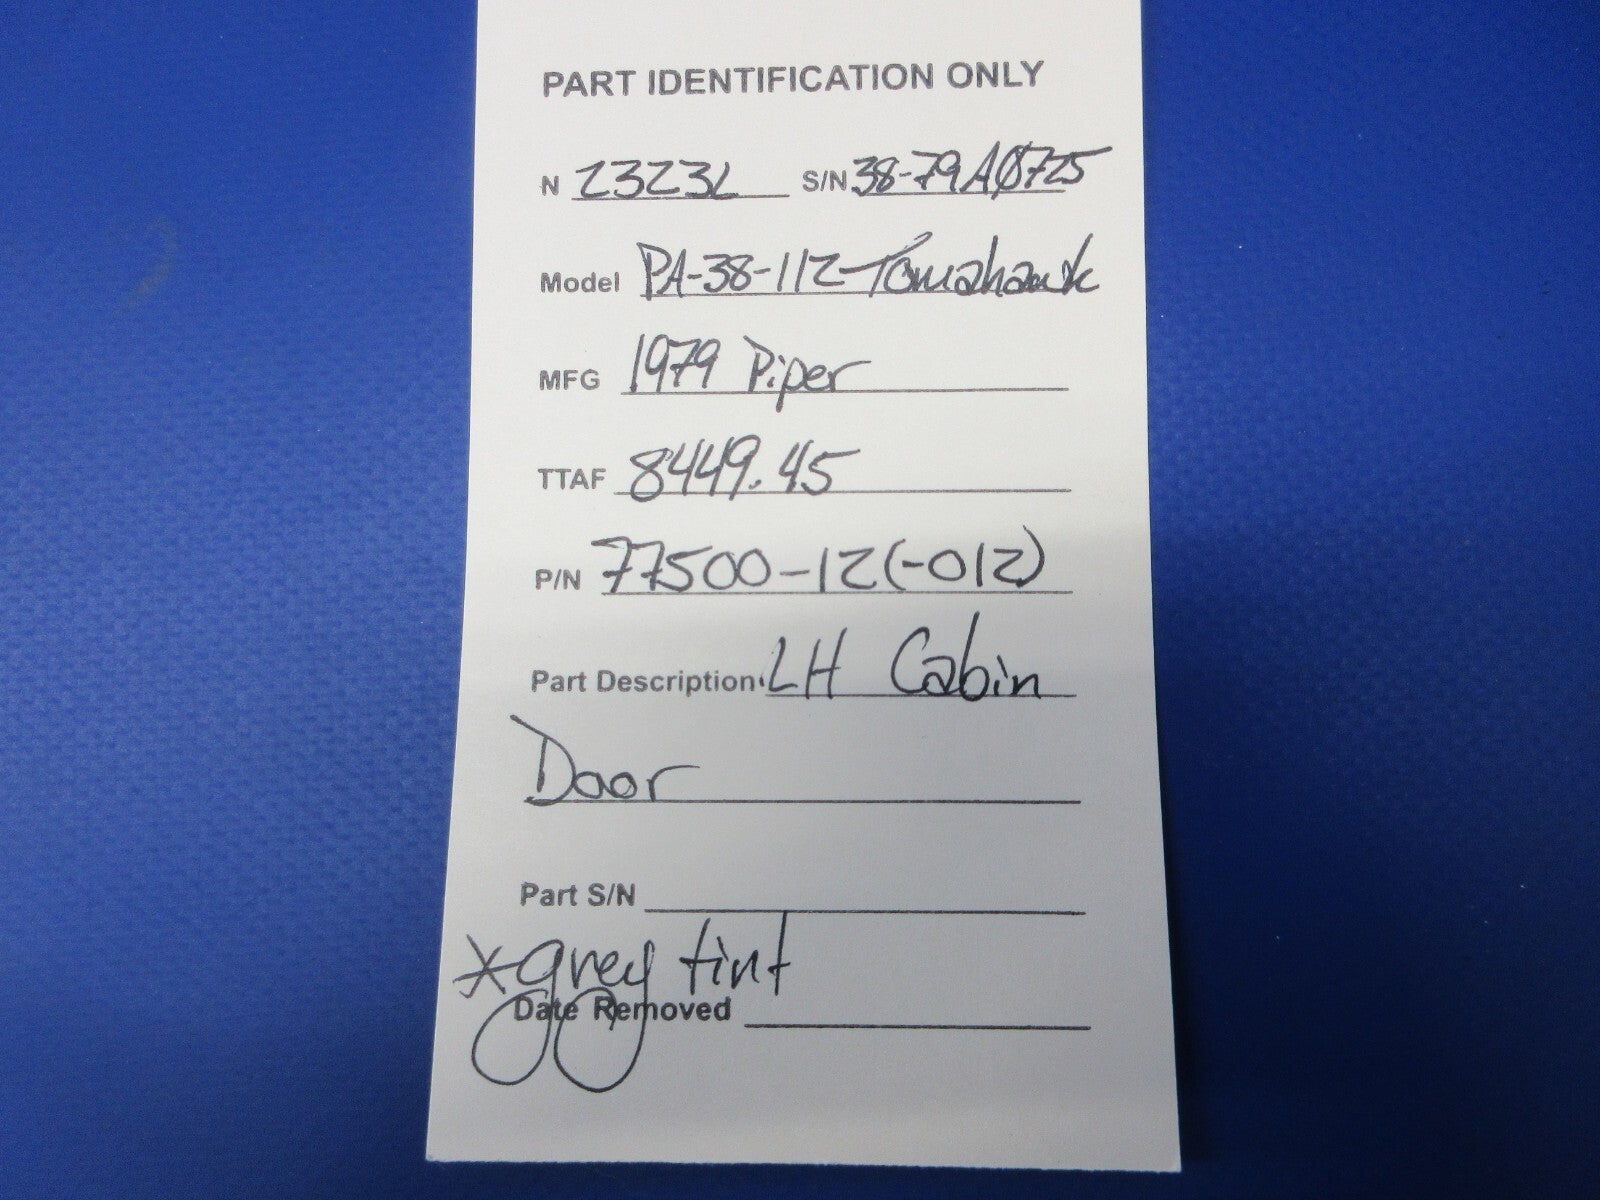 PART IDENTIFICATION ONLY
N 2323L S/N 38-79A0725
Model PA-38-112-Tomahawk
MFG 1979 Piper
TTAF 8449.45
P/N 77500-12(-012)
Part Description LH Cabin
Door
Part S/N
*grey tint
Date Removed